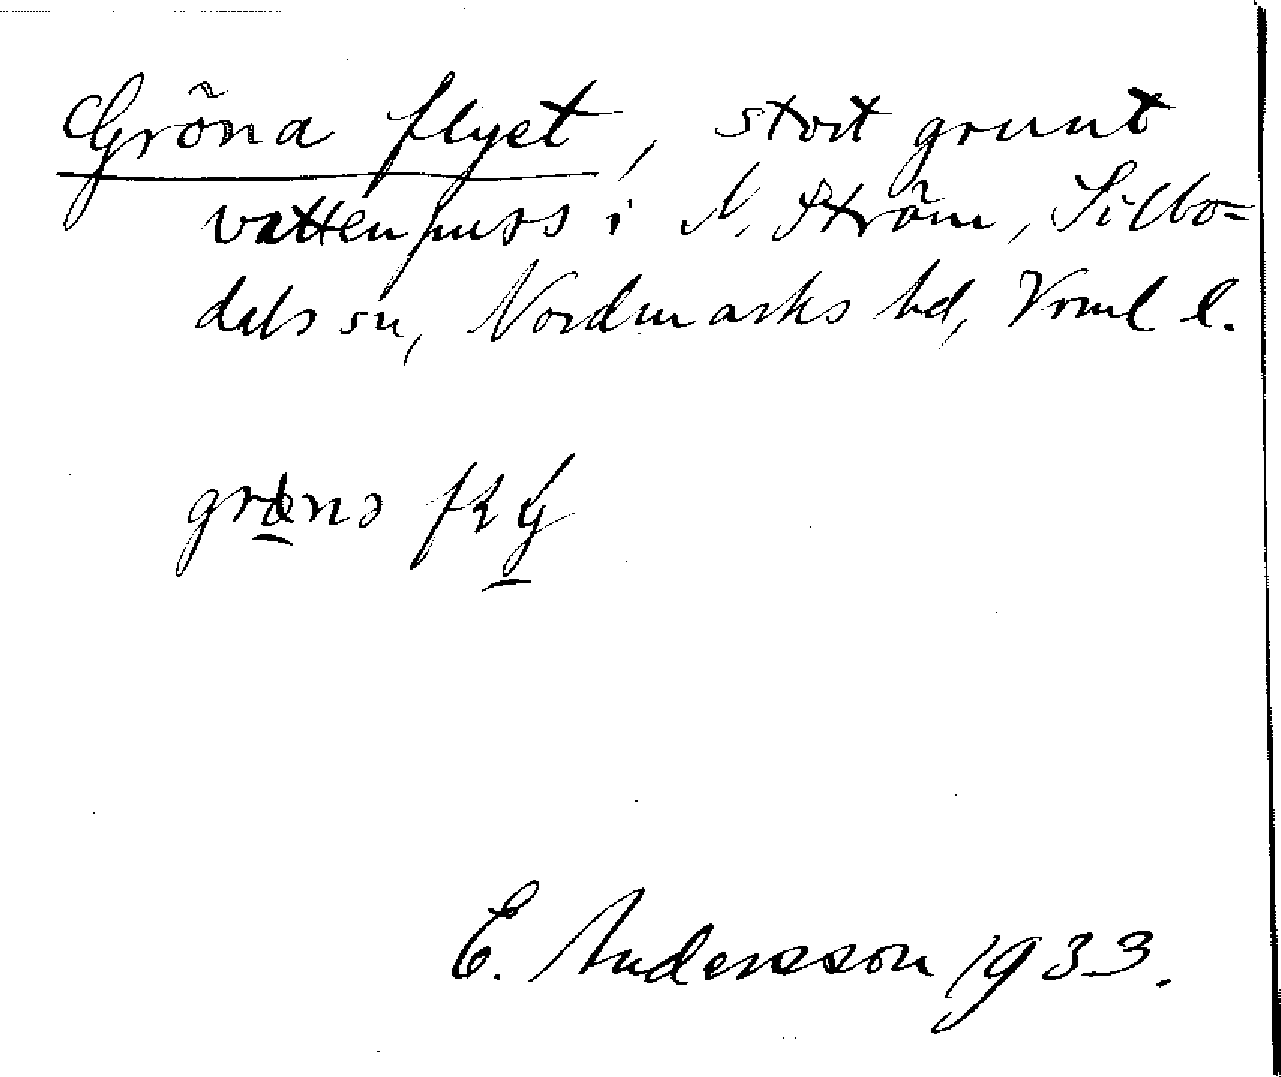 Gröna flyet, stort grunt
vattenpuss i N. Ström, Silbo=
dals sn, Nordmarks hd, Vrml l.
E. Andersson 1933.